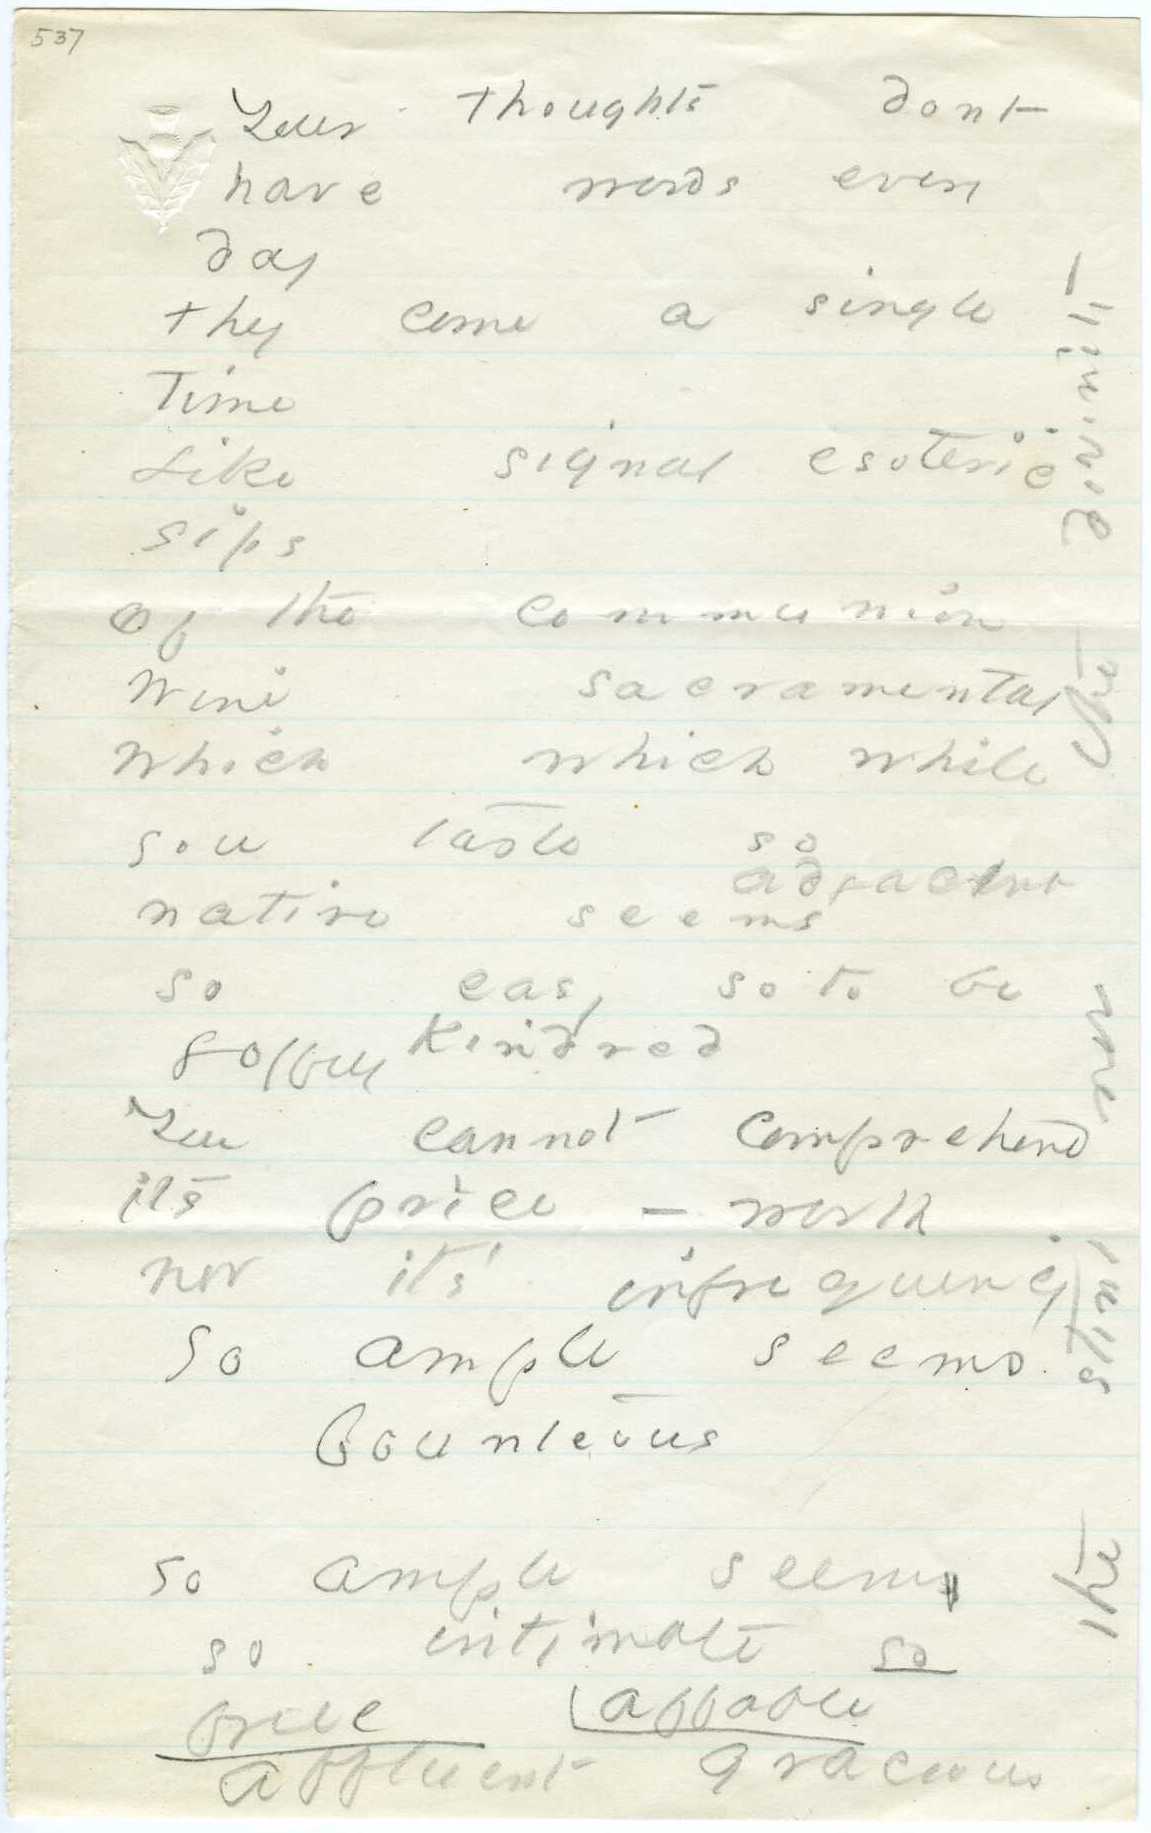 537
Your thoughts dont
have words every
day
they come a single
Time
Like signal esoteric
sips
of the communion
Wine sacramental
Which which while
you taste so
adjacent
native seems
so easy so to be
Kindred
You cannot comprehend
its price – worth
nor it's infrequency
So ample seems
Bounteous
so ample seems
so intimate so
free affable
affluent gracious
the stint nor the divinity –